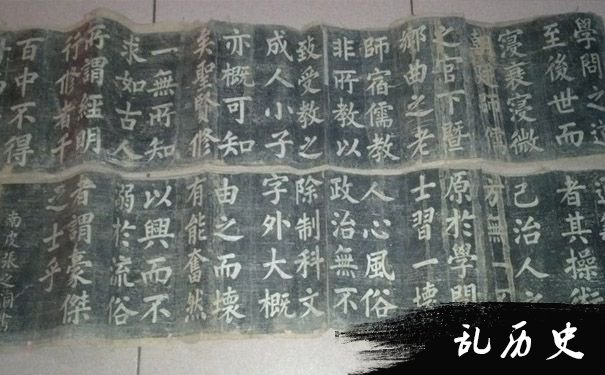 學問之
至後世而
寖衰寖微
師儒
之官下暨
鄉曲之老
師宿儒教
非所教以
致受教之
成人小子
亦概可知
矣聖賢修
一無所知
求如古人
所謂經明
行修者千
百中不得
者其操術
己治人之
方無
原於學問
士習一壞
人心風俗
政治無不
除制科文
字外大概
由之而壞
有能奮然
以興而不
溺於流俗
者謂豪傑
之士乎
南皮張之洞書
乱历史